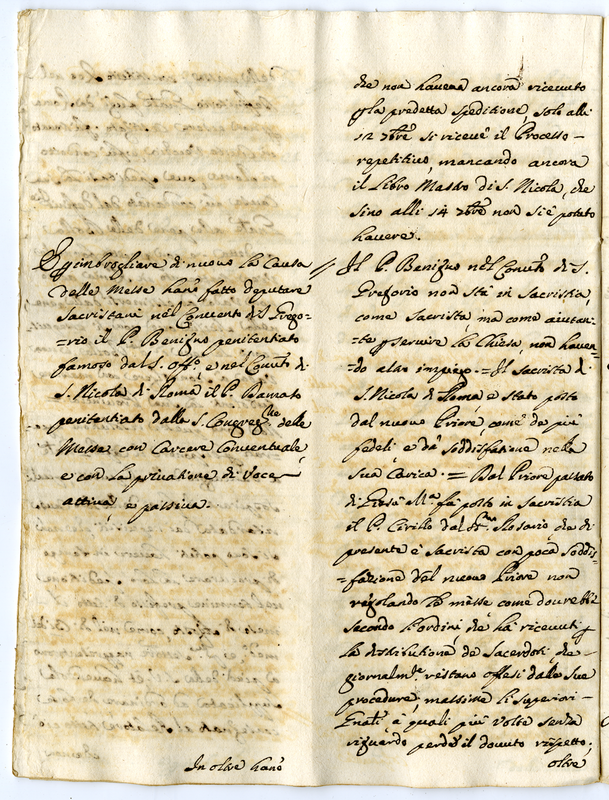 P imbrogliare di nuovo la Causa
delle Messe hano fatto deputare
Sacristani nel Convento di S. Grego-
=rio il P. Benigno penitentiato
famoso dal S. Offo. e nel Convto. di
S. Nicola di Roma il P. Damaso
penitentiato dalla S. Congregne. delle
Messe con Carcere Conventuale,
e con la privatione di Voce
attiva, e passiva.
In oltre hano
che non haveva ancora ricevuto
p la predetta speditione, solo alli
12 7bre si ricevè il Processo
repetitivo, mancando ancora
il Libro Mastro di S. Nicola, che
sino alli 14 7bre non si è potuto
havere.
Il P. Benigno nel Convto. di S.
Gregorio non stà in Sacristia,
come Sacrista, ma come aiutan-
=te p servire la Chiesa, non haven=
=do altro impiego. = Il Sacrista di
S. Nicola di Roma è stato posto
dal nuovo Priore come de più
fedeli e dà soddisfatione nella
sua Carica. = Dal Priore passato
di Giesù Ma. fù posto in Sacristia
il P. Cirillo dal SSmo. Rosario, che di
presente è Sacrista con poca soddis-
=fazione del nuovo Priore non
regolando le messe come dovrebbe
secondo l'ordini, che hà ricevuti p
la distributione de Sacerdoti, che
giornalmte. restano offesi dalle sue
procedure, massime li Superiori
a quali più volte senza
riguardo perde il dovuto rispetto;
oltre